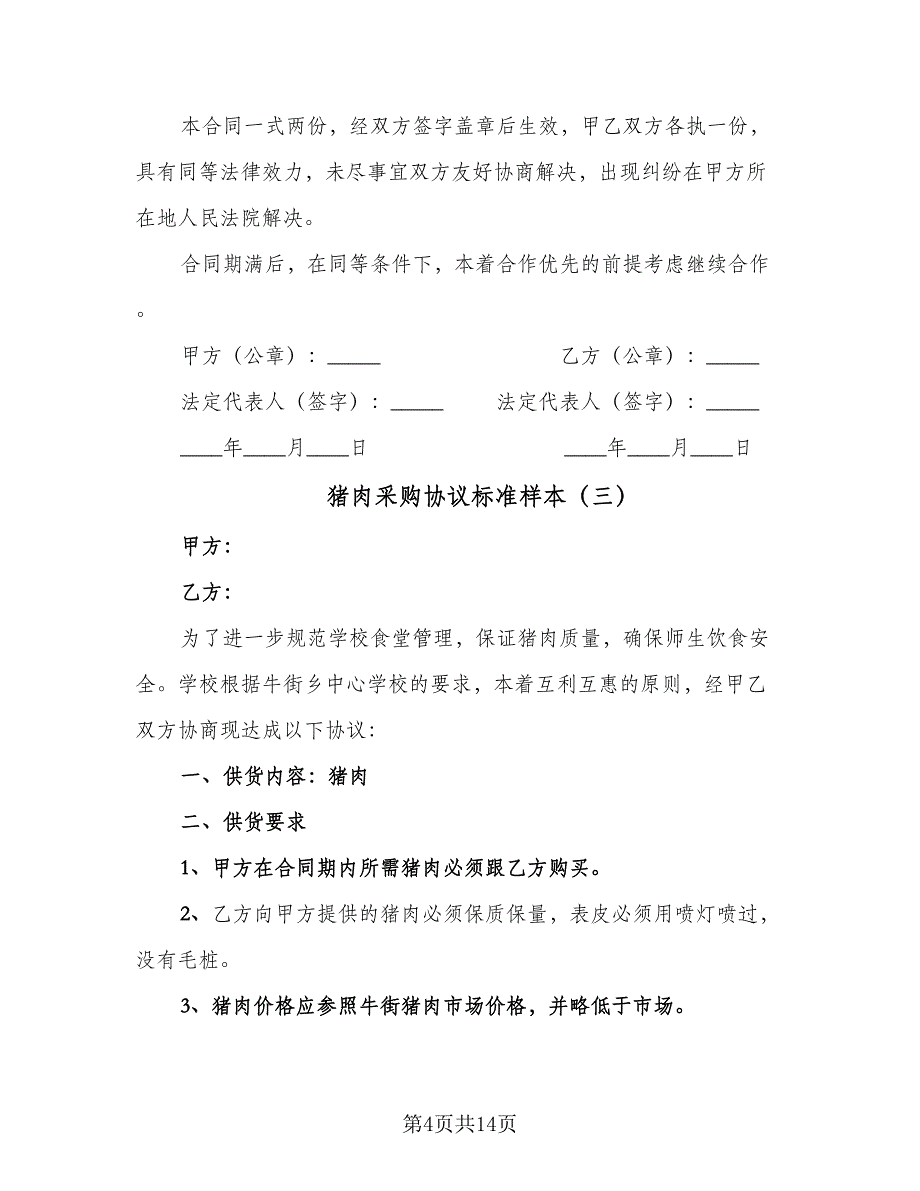 本合同一式两份，经双方签字盖章后生效，甲乙双方各执一份，
具有同等法律效力，未尽事宜双方友好协商解决，出现纠纷在甲方所
在地人民法院解决。
合同期满后，在同等条件下，本着合作优先的前提考虑继续合作
。
甲方（公章）：_____ 乙方（公章）：_____
法定代表人（签字）：_____ 法定代表人（签字）：_____
____年____月____日 ____年____月____日
猪肉采购协议标准样本（三）
甲方：
乙方：
为了进一步规范学校食堂管理，保证猪肉质量，确保师生饮食安
全。学校根据牛街乡中心学校的要求，本着互利互惠的原则，经甲乙
双方协商现达成以下协议：
一、供货内容：猪肉
二、供货要求
1、甲方在合同期内所需猪肉必须跟乙方购买。
2、乙方向甲方提供的猪肉必须保质保量，表皮必须用喷灯喷过，
没有毛桩。
3、猪肉价格应参照牛街猪肉市场价格，并略低于市场。
第4页共14页